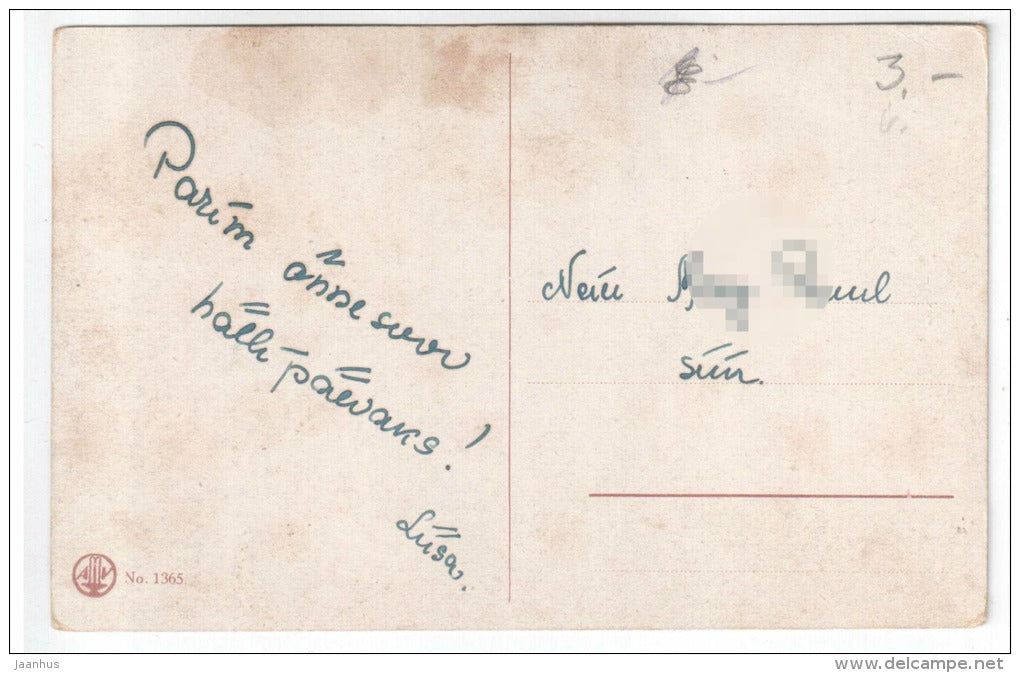 Parim
õnnesoov
hälli päevaks!
Liisa.
No. 1365
3.-
Neiu
siin.
Jaanhus
www.delcampe.net